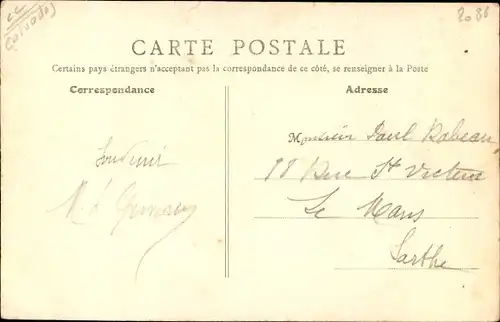 Calvados
2086
CARTE POSTALE
Certains pays étrangers n'acceptant pas la correspondance de ce côté, se renseigner à la Poste
Correspondance
Adresse
Souvenir
Monsieur Paul Rabeau
Rue St Victeur
Le Mans
Sarthe